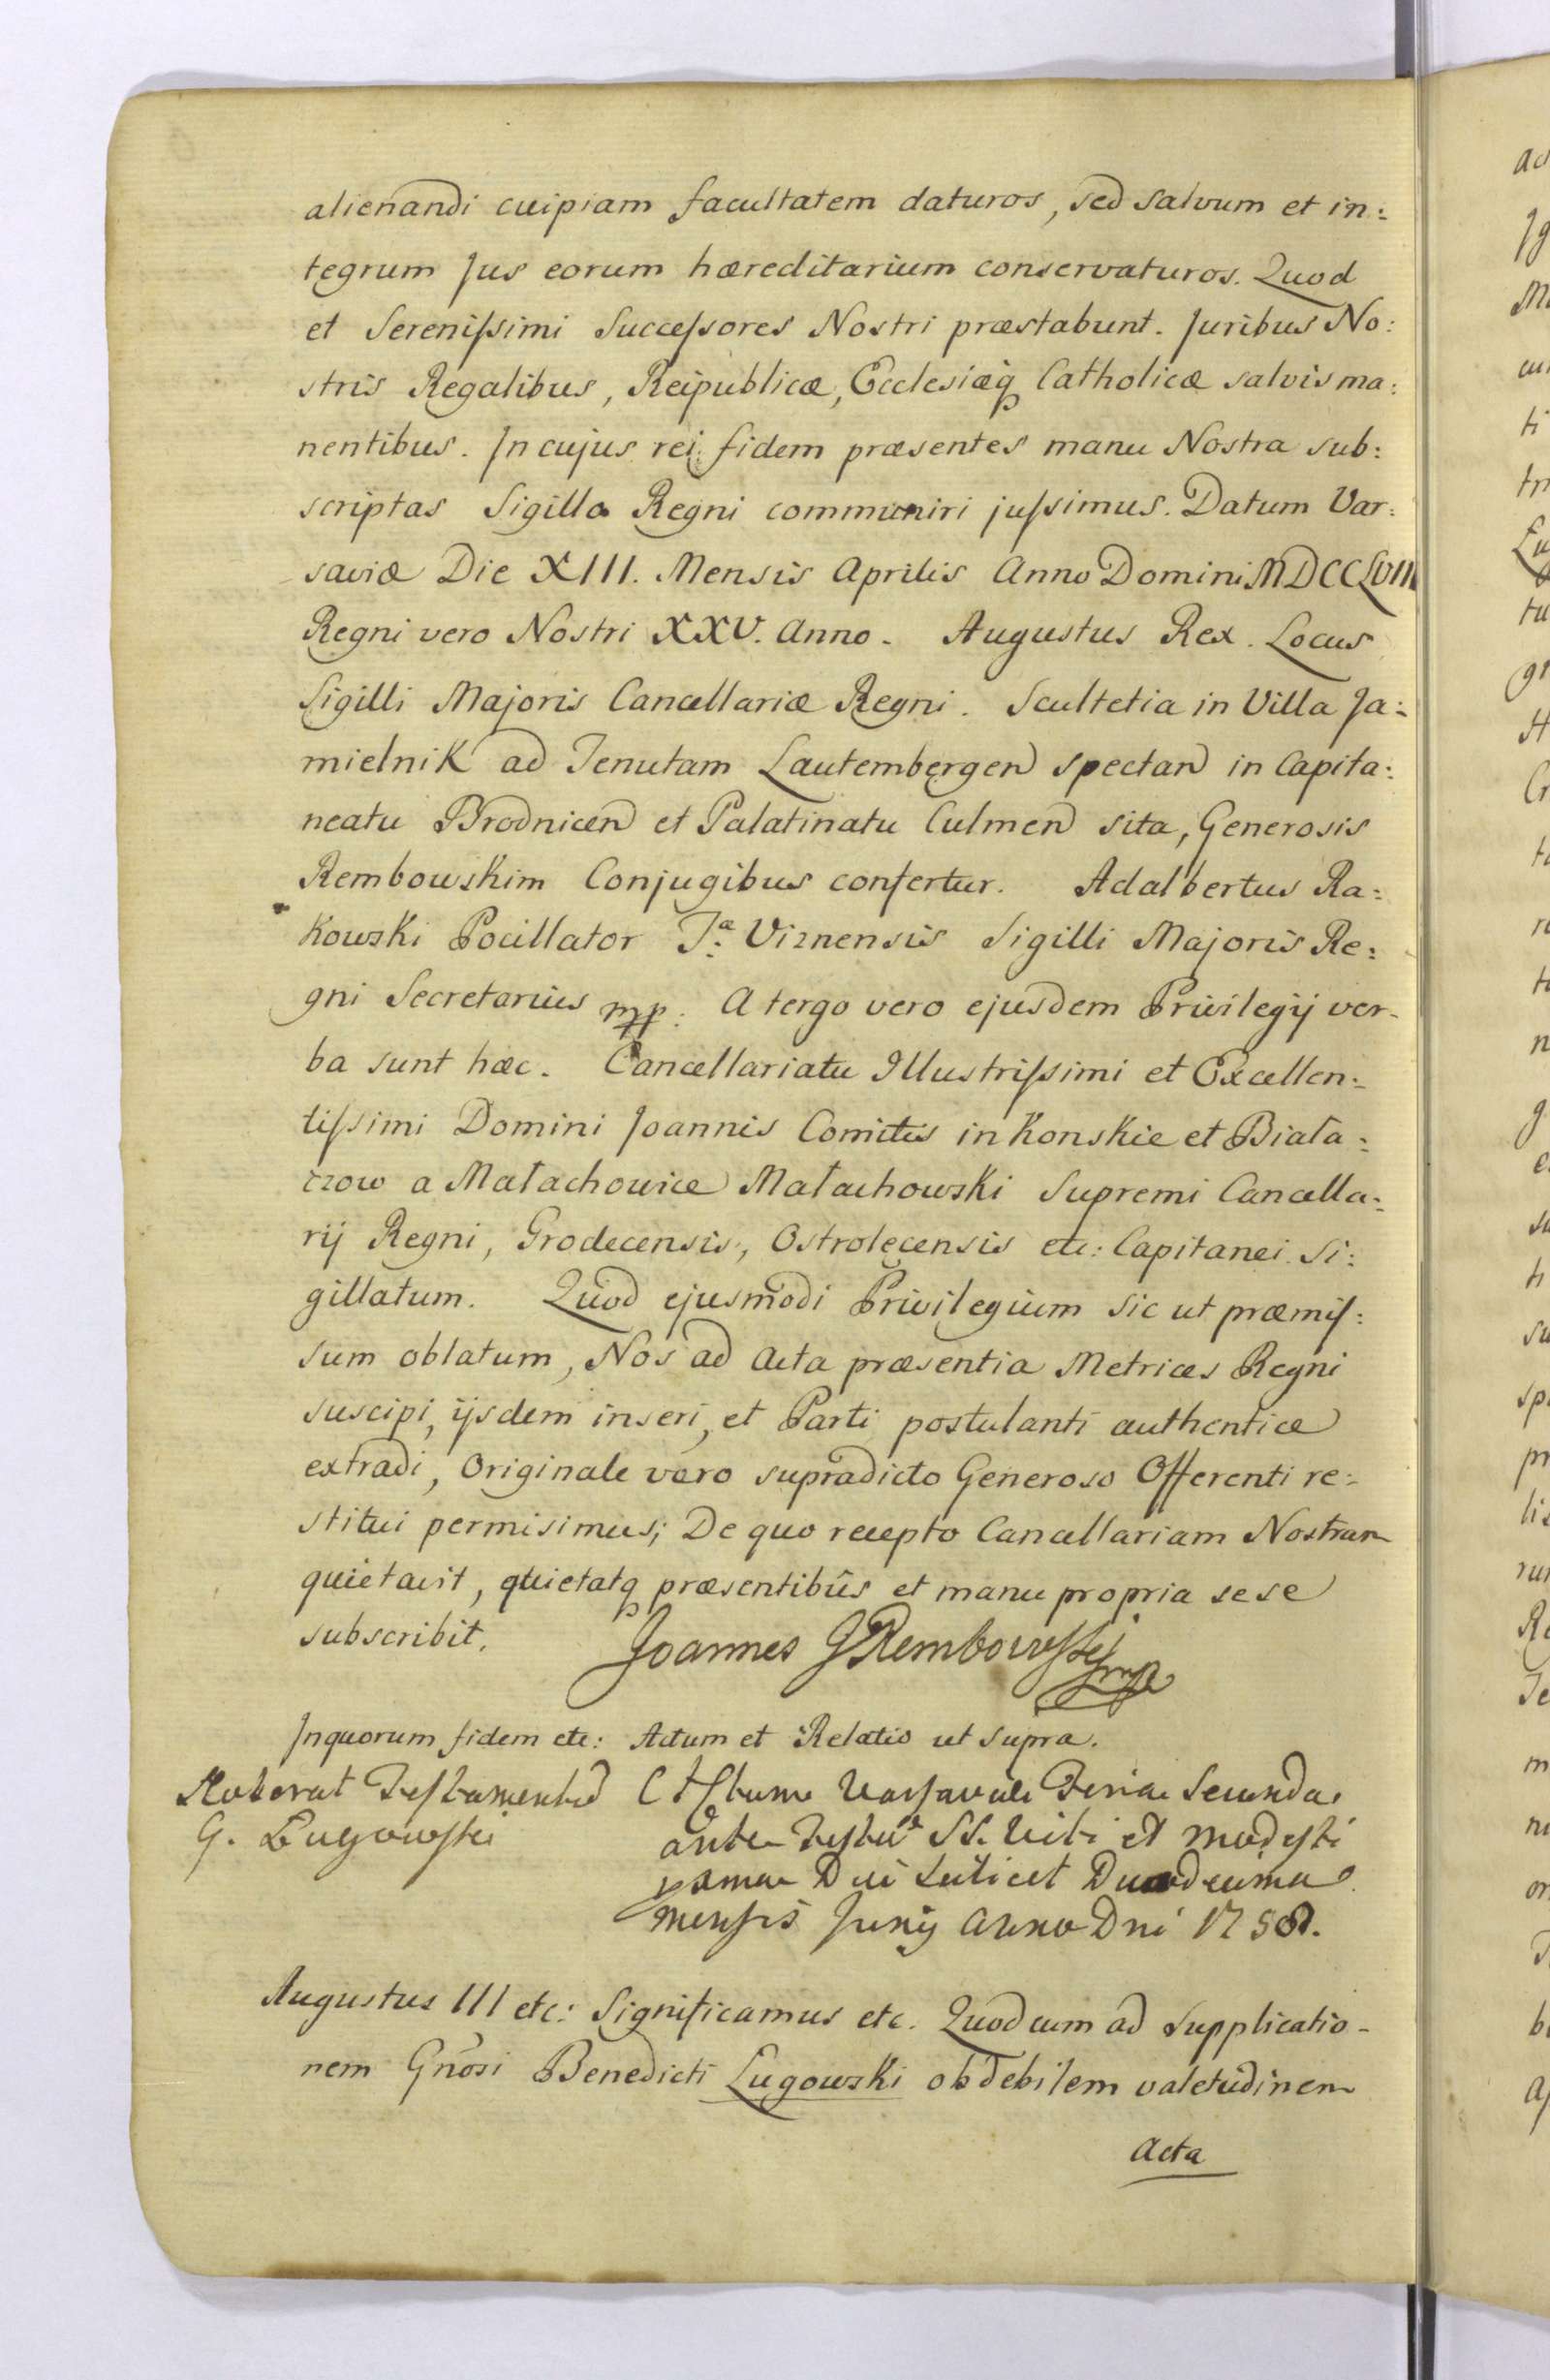 alienandi cuipiam facultatem daturos, sed salvum et in:
tegrum Jus eorum hæreditarium conservaturos. Quod
et Serenissimi Successores Nostri præstabunt. Juribus No:
stris Regalibus, Reipublicæ, Ecclesiæq Catholicæ salvis ma:
nentibus. In cujus rei fidem præsentes manu Nostra sub:
scriptas Sigillo Regni communiri jussimus. Datum Var:
saviæ Die XIII. Mensis Aprilis Anno Domini MDCCLVIII
Regni vero Nostri XXV. Anno. Augustus Rex. Locus
Sigilli Majoris Cancellariæ Regni. Scultetia in Villa Ja:
mielnik ad Tenutam Lautembergen spectan in Capita:
neatu Brodnicen et Palatinatu Culmen sita, Generosis
Rembowskim Conjugibus confertur. Adalbertus Ra:
kowski Pocillator Tæ Viznensis Sigilli Majoris Re:
gni Secretarius mp: A tergo vero ejusdem Privilegij ver-
ba sunt hæc. Cancellariatu Illustrissimi et Excellen:
tissimi Domini Joannis Comitis in Konskie et Biała:
czow a Małachowice Małachowski Supremi Cancella:
rij Regni, Grodecensis, Ostrolęcensis etc: Capitanei Si:
gillatum. Quod ejusmodi Privilegium sic ut præmis:
sum oblatum, Nos ad Acta præsentia Metrices Regni
suscipi, ijsdem inseri, et Parti postulanti authentice
extradi, Originale vero supradicto Generoso Offerenti re:
stitui permisimus; De quo recepto Cancellariam Nostram
quietavit, quietatq præsentibus et manu propria sese
subscribit. Joannes G Rembowski mp
In quorum fidem etc: Actum et Relatio ut supra.
Roborat Testamentu Actum Varsaviæ Feria Secunda
G. Ługowski ante Festu SS. Viti et Modesti
Dui scilicet Duodecima
mensis Junij Anno Dni 1758.
Augustus III etc: Significamus etc. Quod cum ad supplicatio-
nem Gnosi Benedicti Ługowski ob debilem valetudinem
Acta